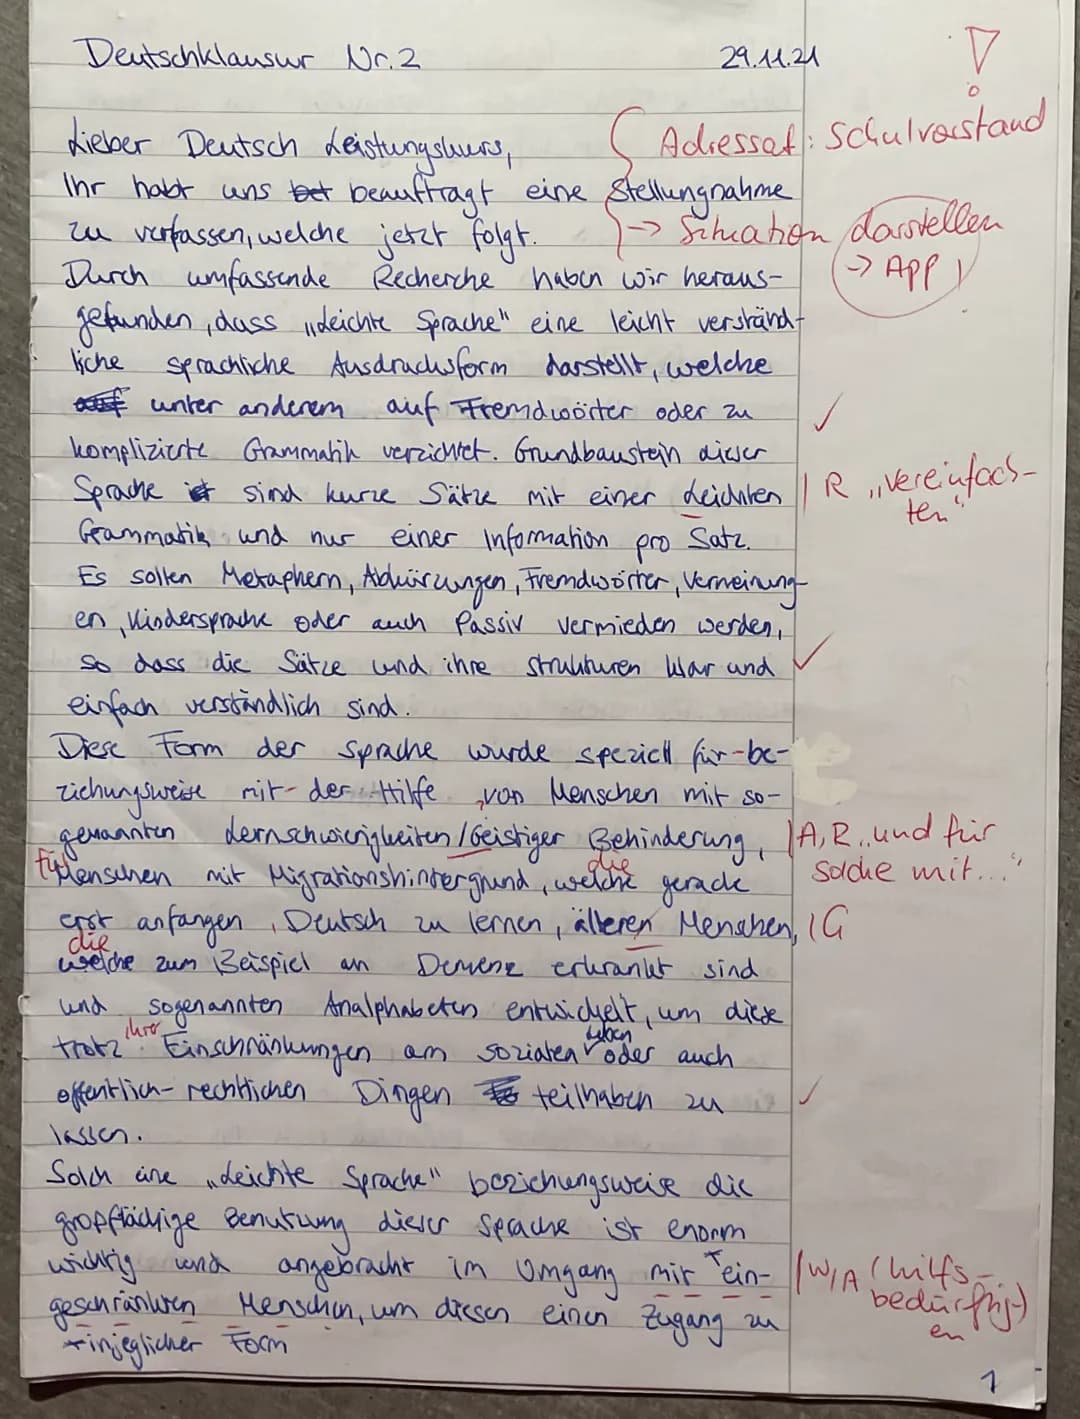 Deutschklausur Nr. 2 29.11.21
Lieber Deutsch Leistungskurs, Adressat: Schulvorstand
Ihr habt uns beauftragt eine Stellungnahme
zu verfassen, welche jetzt folgt. → Situation darstellen
→ App
Durch umfassende Recherche haben wir heraus-
gefunden, dass „Leichte Sprache" eine leicht verständ-
liche sprachliche Ausdrucksform darstellt, welche
unter anderem auf Fremdwörter oder zu
komplizierte Grammatik verzichtet. Grundbaustein dieser
Sprache sind kurze Sätze mit einer Leichten R „vereinfach-
ten"
Grammatik und nur einer Information pro Satz.
Es sollen Metaphern, Abkürzungen, Fremdwörter, Verneinung-
en, Kindersprache oder auch Passiv vermieden werden,
so dass die Sätze und ihre Strukturen klar und
einfach verständlich sind.
Diese Form der Sprache wurde speziell für-be-
ziehungsweise mit- der Hilfe von Menschen mit so-
genannten Lernschwierigkeiten/Geistiger Behinderung, A, R „und für
solche mit..."
für Menschen mit Migrationshintergrund, welche die gerade
erst anfangen, Deutsch zu lernen, älteren Menschen, G
die
welche zum Beispiel an Demenz erkrankt sind
und sogenannten Analphabeten entwickelt, um diese
trotz ihrer Einschränkungen am sozialen Leben oder auch
öffentlich-rechtlichen Dingen teilhaben zu
lassen.
Solch eine „Leichte Sprache" beziehungsweise die
großflächige Benutzung dieser Sprache ist enorm
wichtig und angebracht im Umgang mit ein- W/A (hilfs-
bedürftig-
en)
geschränkten Menschen, um diesen einen Zugang zu
in jeglicher Form
1